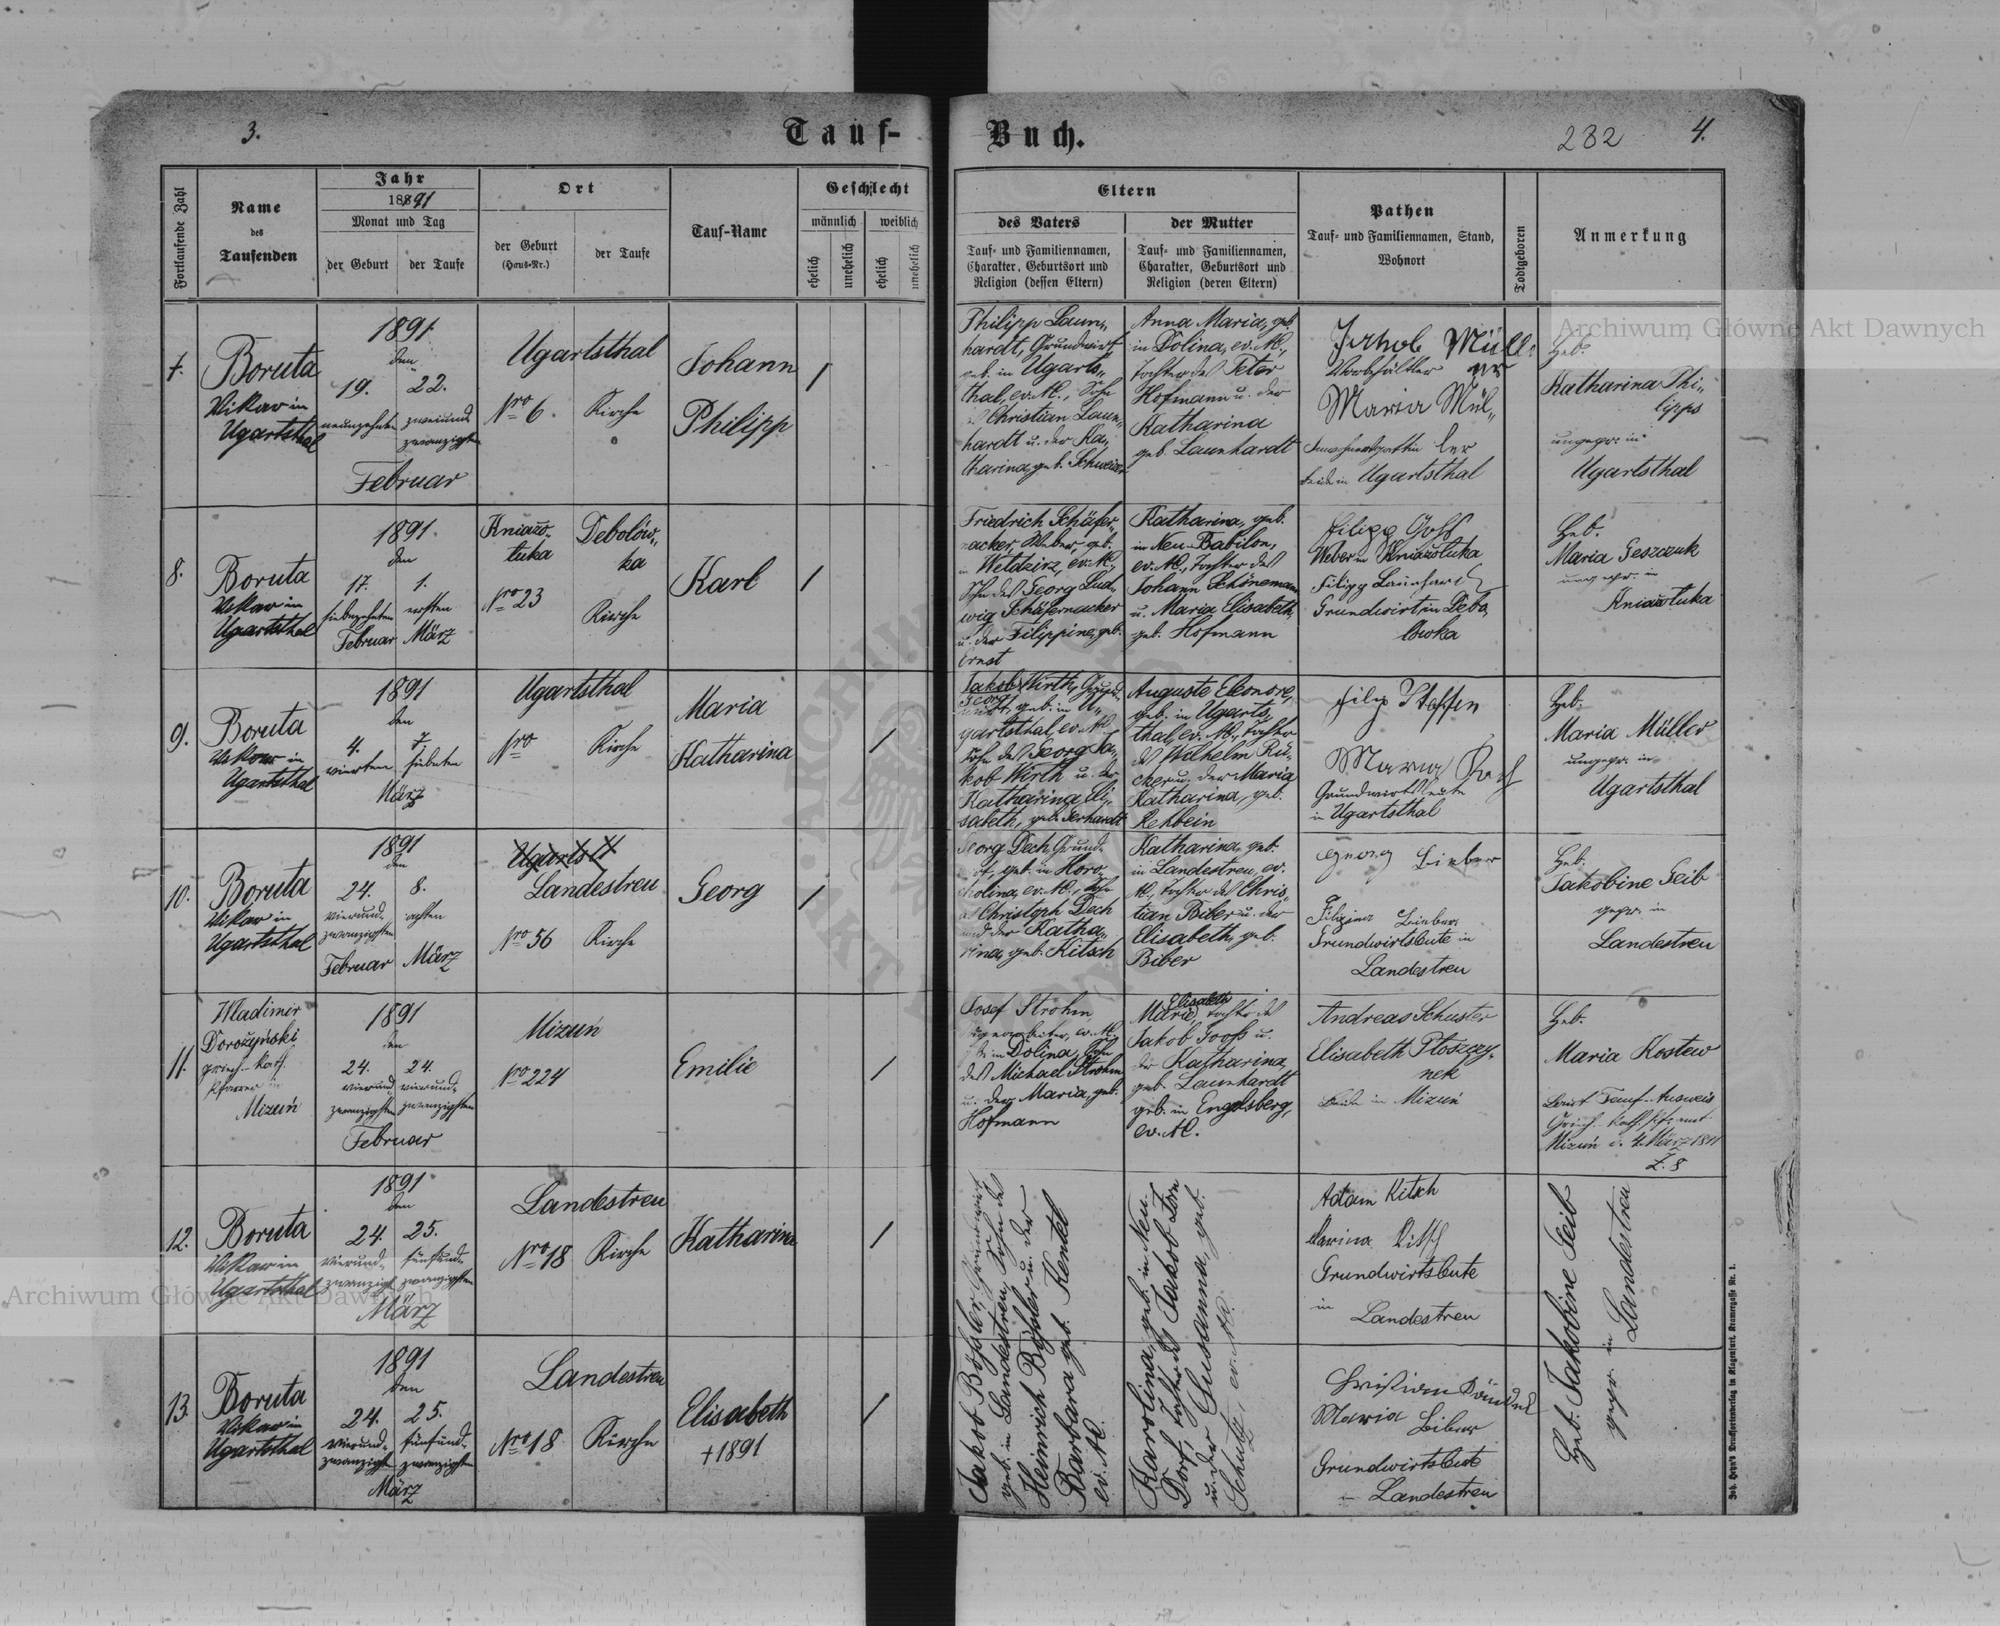 3.
Tauf-
Buch.
232
4.
Fortlaufende Zahl
Name
des
Taufenden
Jahr
1891
Monat und Tag
der Geburt
der Taufe
Ort
der Geburt
(Haus-Nr.)
der Taufe
Tauf-Name
Geschlecht
männlich
weiblich
ehelich
unehelich
ehelich
unehelich
Eltern
des Vaters
Tauf- und Familiennamen,
Charakter, Geburtsort und
Religion (dessen Eltern)
der Mutter
Tauf- und Familiennamen,
Charakter, Geburtsort und
Religion (deren Eltern)
Pathen
Tauf- und Familiennamen, Stand,
Wohnort
Todtgeboren
Anmerkung
7.
Boruta
Vikar in
Ugartsthal
1891
den
19. 22.
neunzehnten zweiund
zwanzigsten
Februar
Ugartsthal
Nro 6. Kirche
Johann
Philipp
Philipp Laun„
hardt, Grundwirt
geb. in Ugarts„
thal, ev. A., Sohn
Christian Laun„
hardt u. der Ka„
tharina, geb. Schweizer
Anna Maria, geb.
in Dolina, ev. A.,
Tochter des Peter
Hofmann u. der
Katharina
geb. Launhardt
Jakob Müll„
er
Maria Mül„
ler
beide in Ugartsthal
Heb.
Katharina Phi„
lipps
ungepr. in
Ugartsthal
8.
Boruta
Vikar in
Ugartsthal
1891.
den
17. 1.
siebzehnten ersten
Februar März
Kniazo„
luka
Nro 23
Debolów„
ka
Kirche
Karl
Friedrich Schäfer„
nacker, Weber, geb.
in Weldzirz, ev. A.,
Sohn des Georg Lud„
wig Schäfernacker
u. der Filippine, geb.
Ernst
Katharina, geb.
in Neu-Babilon,
ev. A., Tochter des
Johann Schönemann
u. Maria Elisabeth,
geb. Hofmann
Filipp
Weber in Kniazoluka
Filipp Launhardt
Grundwirt in Debo„
lowka
Heb.
Maria Geszczuk
ungepr. in
Kniazoluka
9.
Boruta
Vikar in
Ugartsthal
1891
den
4. 7.
vierten siebenten
März
Ugartsthal
Nro Kirche
Maria
Katharina
Jakob Wirth, Grund„
Georg
wirt, geb. in U„
gartsthal, ev. A.
Sohn des Georg Ja„
kob Wirth u. der
Katharina Eli„
sabeth, geb. Gerhardt
Auguste Eleonore,
geb. in Ugarts„
thal, ev. A., Tochter
des Wilhelm Rü„
cher u. der Maria
Katharina, geb.
Rehbein
Filip Steffen
Maria
Grundwirtsleute
in Ugartsthal
Heb.
Maria Müller
ungepr. in
Ugartsthal
10.
Boruta
Vikar in
Ugartsthal
1891
den
24. 8.
vierund„ achten
zwanzigsten
Februar März
Landestreu
Nro 56 Kirche
Georg
Georg Dech, Grund„
wirt, geb. in Horo„
cholina, ev. A., Sohn
des Christoph Dech
und der Katha„
rina, geb. Kitsch
Katharina, geb.
in Landestreu, ev.
A., Tochter des Chris„
tian Biber u. der
Elisabeth, geb.
Biber
Georg Bieber
Filipina Bieber
Grundwirtsleute in
Landestreu
Heb.
Jakobine Geib
gepr. in
Landestreu
11.
Wladimir
Dorożyński
griech.-kath.
Pfarrer in
Mizuń
1891
den
24. 24.
vierund„ vierund„
zwanzigsten zwanzigsten
Februar
Mizuń
Nro 224
Emilie
Josef Strohm
ev. A.
geb. in Dolina, Sohn
des Michael Strohm
u. der Maria, geb.
Hofmann
Elisabeth
Maria, Tochter des
Jakob Jooss u.
der Katharina,
geb. Launhardt
geb. in Engelsberg,
ev. A.
Andreas Schuster
Elisabeth Ploszczy„
nek
Beide in Mizuń
Heb.
Maria Kostew
Laut Tauf-Ausweis
Griech.-kath. Pfarramt
Mizuń d. 4. März 1891
Z. 8
12.
Boruta
Vikar in
Ugartsthal
1891
den
24. 25.
vierund„ fünfund„
zwanzigst. zwanzigsten
März
Landestreu
Nro 18 Kirche
Katharina
Jakob Bößler, Grundwirt
geb. in Landestreu, Sohn des
Heinrich Bößler u. der
Barbara geb. Kentel
ev. A.
Karolina, geb. in Neu
Dorf, Tochter des Jakob Zorn
u. der Susanna geb.
Schutz, ev. A.
Adam Kitsch
Karina Kitsch
Grundwirtsleute
in
Landestreu
Heb. Jakobine Geib
gepr. in
Landestreu
13.
Boruta
Vikar in
Ugartsthal
1891
den
24. 25.
vierund„ fünfund„
zwanzigst. zwanzigsten
März
Landestreu
Nro 18 Kirche
Elisabeth
+ 1891
Christian
Maria Biber
Grundwirtsleute
in Landestreu
Joh. Heyn's Drucksortenverlag in Klagenfurt, Kramergasse Nr. 1.
Archiwum Główne Akt Dawnych
Archiwum Główne Akt Dawnych